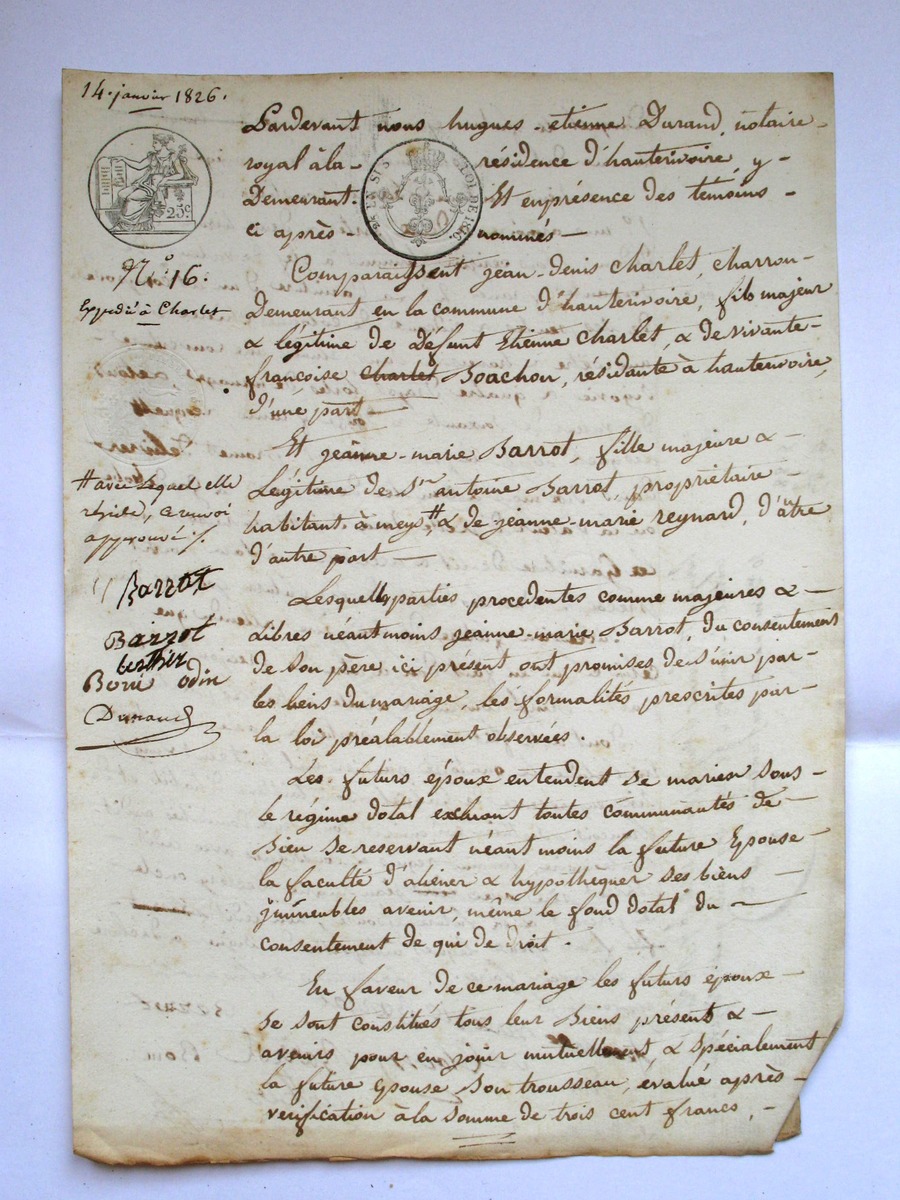 14. janvier 1826.
Pardevant nous hugues-etienne Durand, notaire-
royal à la- résidence d'hauterivoire y-
Demeurant Et en présence des temoins-
ci après- nommés-
25c
LOI DE 1816.
N.º 16.
Expedié à Charlet
Comparaissent jean-denis charlet, charron-
Demeurant en la commune d'hauterivoire, fils majeur
& légitime de Défunt Etienne charlet, & de vivante-
françoise charlet Boachon, résidante à hauterivoire,
d'une part-
Et jeanne-marie Barrot, fille majeure &-
Légitime de Sr antoine Barrot, propriétaire-
habitant à meys # & de jeanne-marie reynard, d'autre
d'autre part-
# avec lequel elle
reside, renvoi
approuvé ./.
Barrot
Barrot
Berthier
Borie odin
Durand
Lesquelles parties procedentes comme majeures &-
Libres néantmoins jeanne-marie Barrot, du consentement
de son père ici présent ont promises de s'unir par-
les liens du mariage, les formalités prescrites par-
la loi préalablement observées.
Les futurs époux entendent se marier sous-
le régime dotal excluant toutes communautés de-
Bien se reservant néantmoins la future Epouse-
la faculté d'aliéner & hypothèquer ses biens-
immeubles avenir, même le fond dotal du-
consentement de qui de droit.
En faveur de ce mariage les futurs époux-
se sont constitués tous leur Biens présent &-
avenirs pour en jouir mutuellement & spécialement
la future Epouse son trousseau, évalué après-
verification à la somme de trois cent francs,-